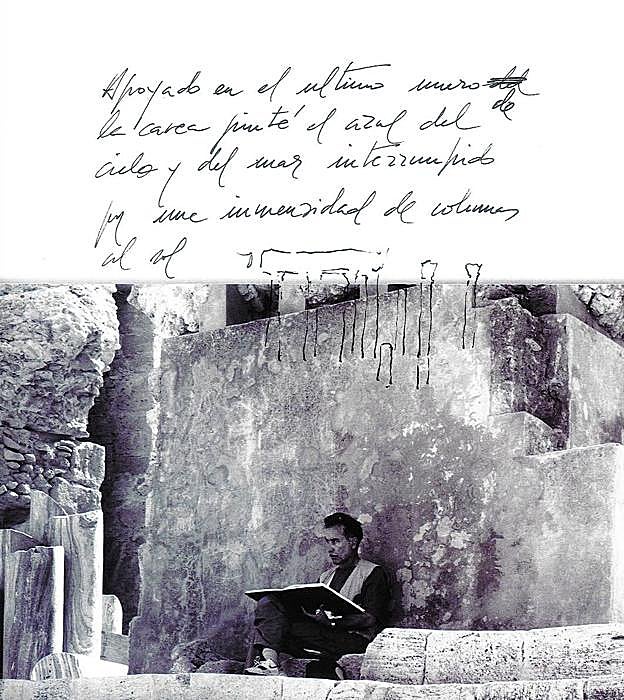 Apoyado en el ultimo muro del de
la cavea pinté el azul del
cielo y del mar interrumpido
por une inmensidad de columnas
al sol